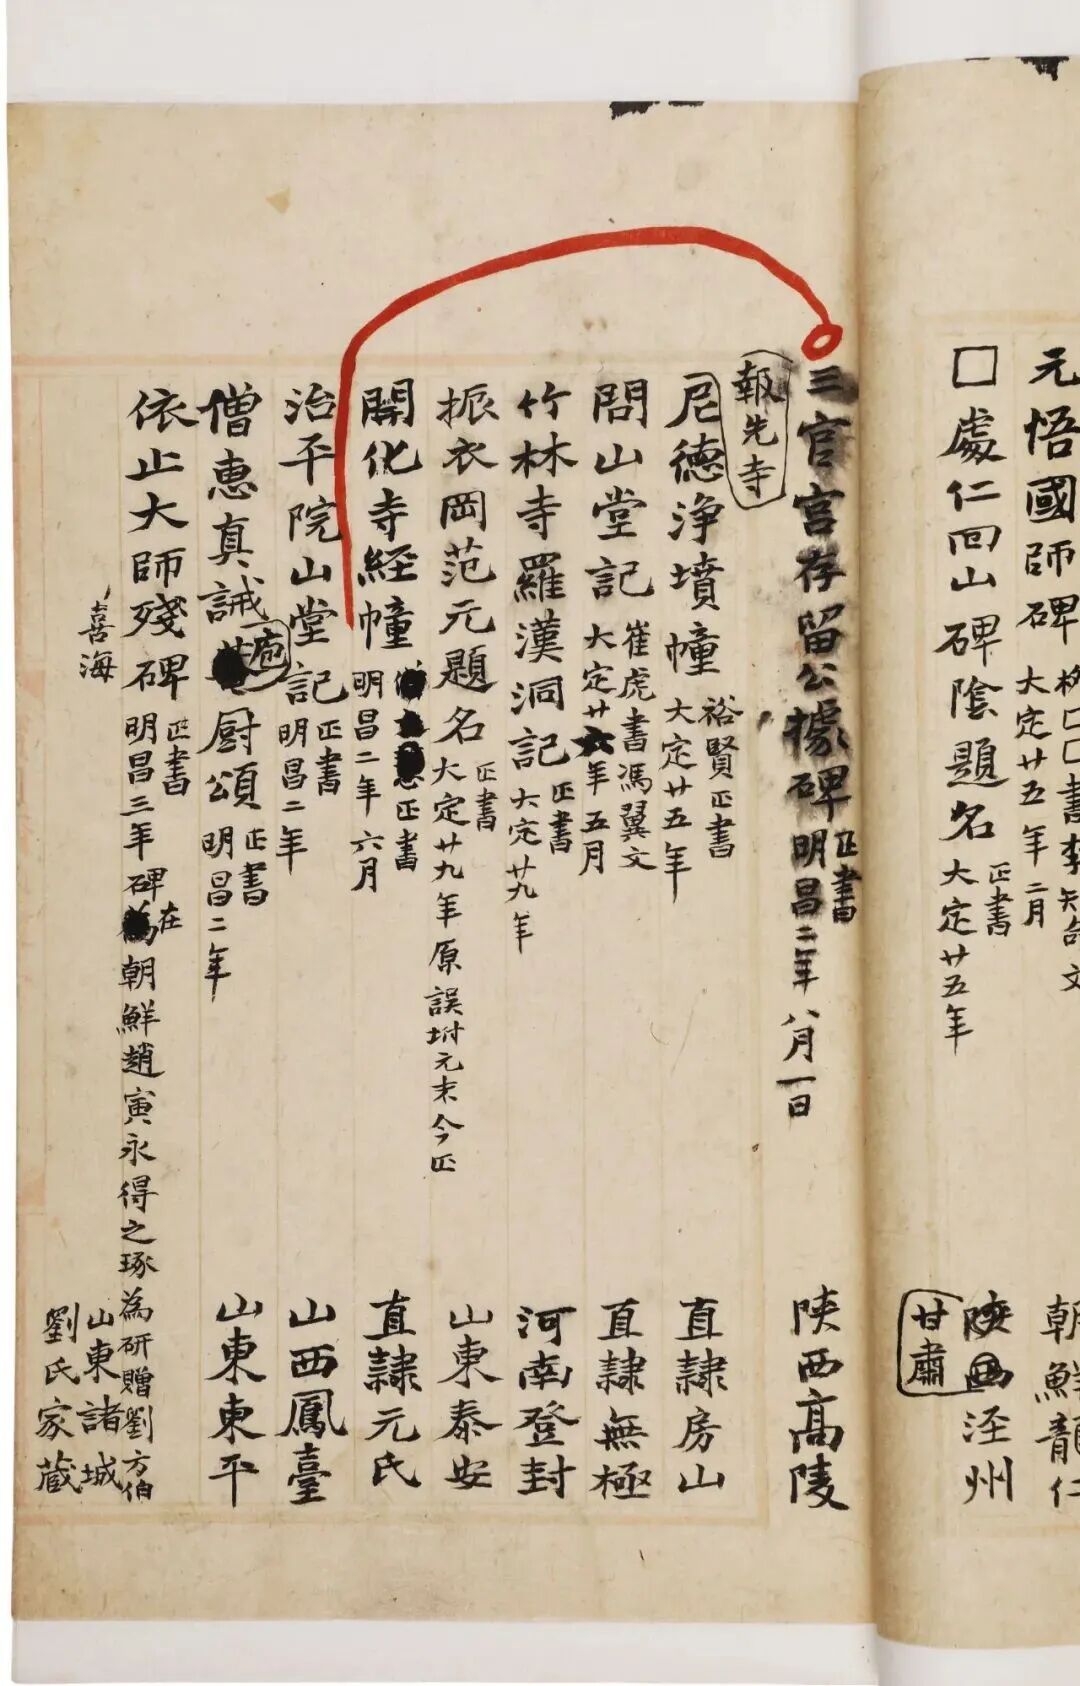 元悟國師碑 書李知命文 大定廿五年二月 朝鮮龍仁
□處仁回山碑陰題名 正書 大定廿五年 陝西涇州 甘肅
三官宮存留公據碑 正書 明昌二年八月一日 陝西高陵
報先寺
尼德淨墳幢 裕賢正書 大定廿五年 直隸房山
問山堂記 崔虎書馮翼文 大定廿六年五月 直隸無極
竹林寺羅漢洞記 正書 大定廿九年 河南登封
振衣岡范元題名 正書 大定廿九年原誤坿元末今正 山東泰安
開化寺經幢 正書 明昌二年六月 直隸元氏
治平院山堂記 正書 明昌二年 山西鳳臺
僧惠真誡庖厨頌 正書 明昌二年 山東東平
依止大師殘碑 正書 明昌三年碑在朝鮮趙寅永得之琢為研贈劉方伯 山東諸城
喜海 劉氏家藏